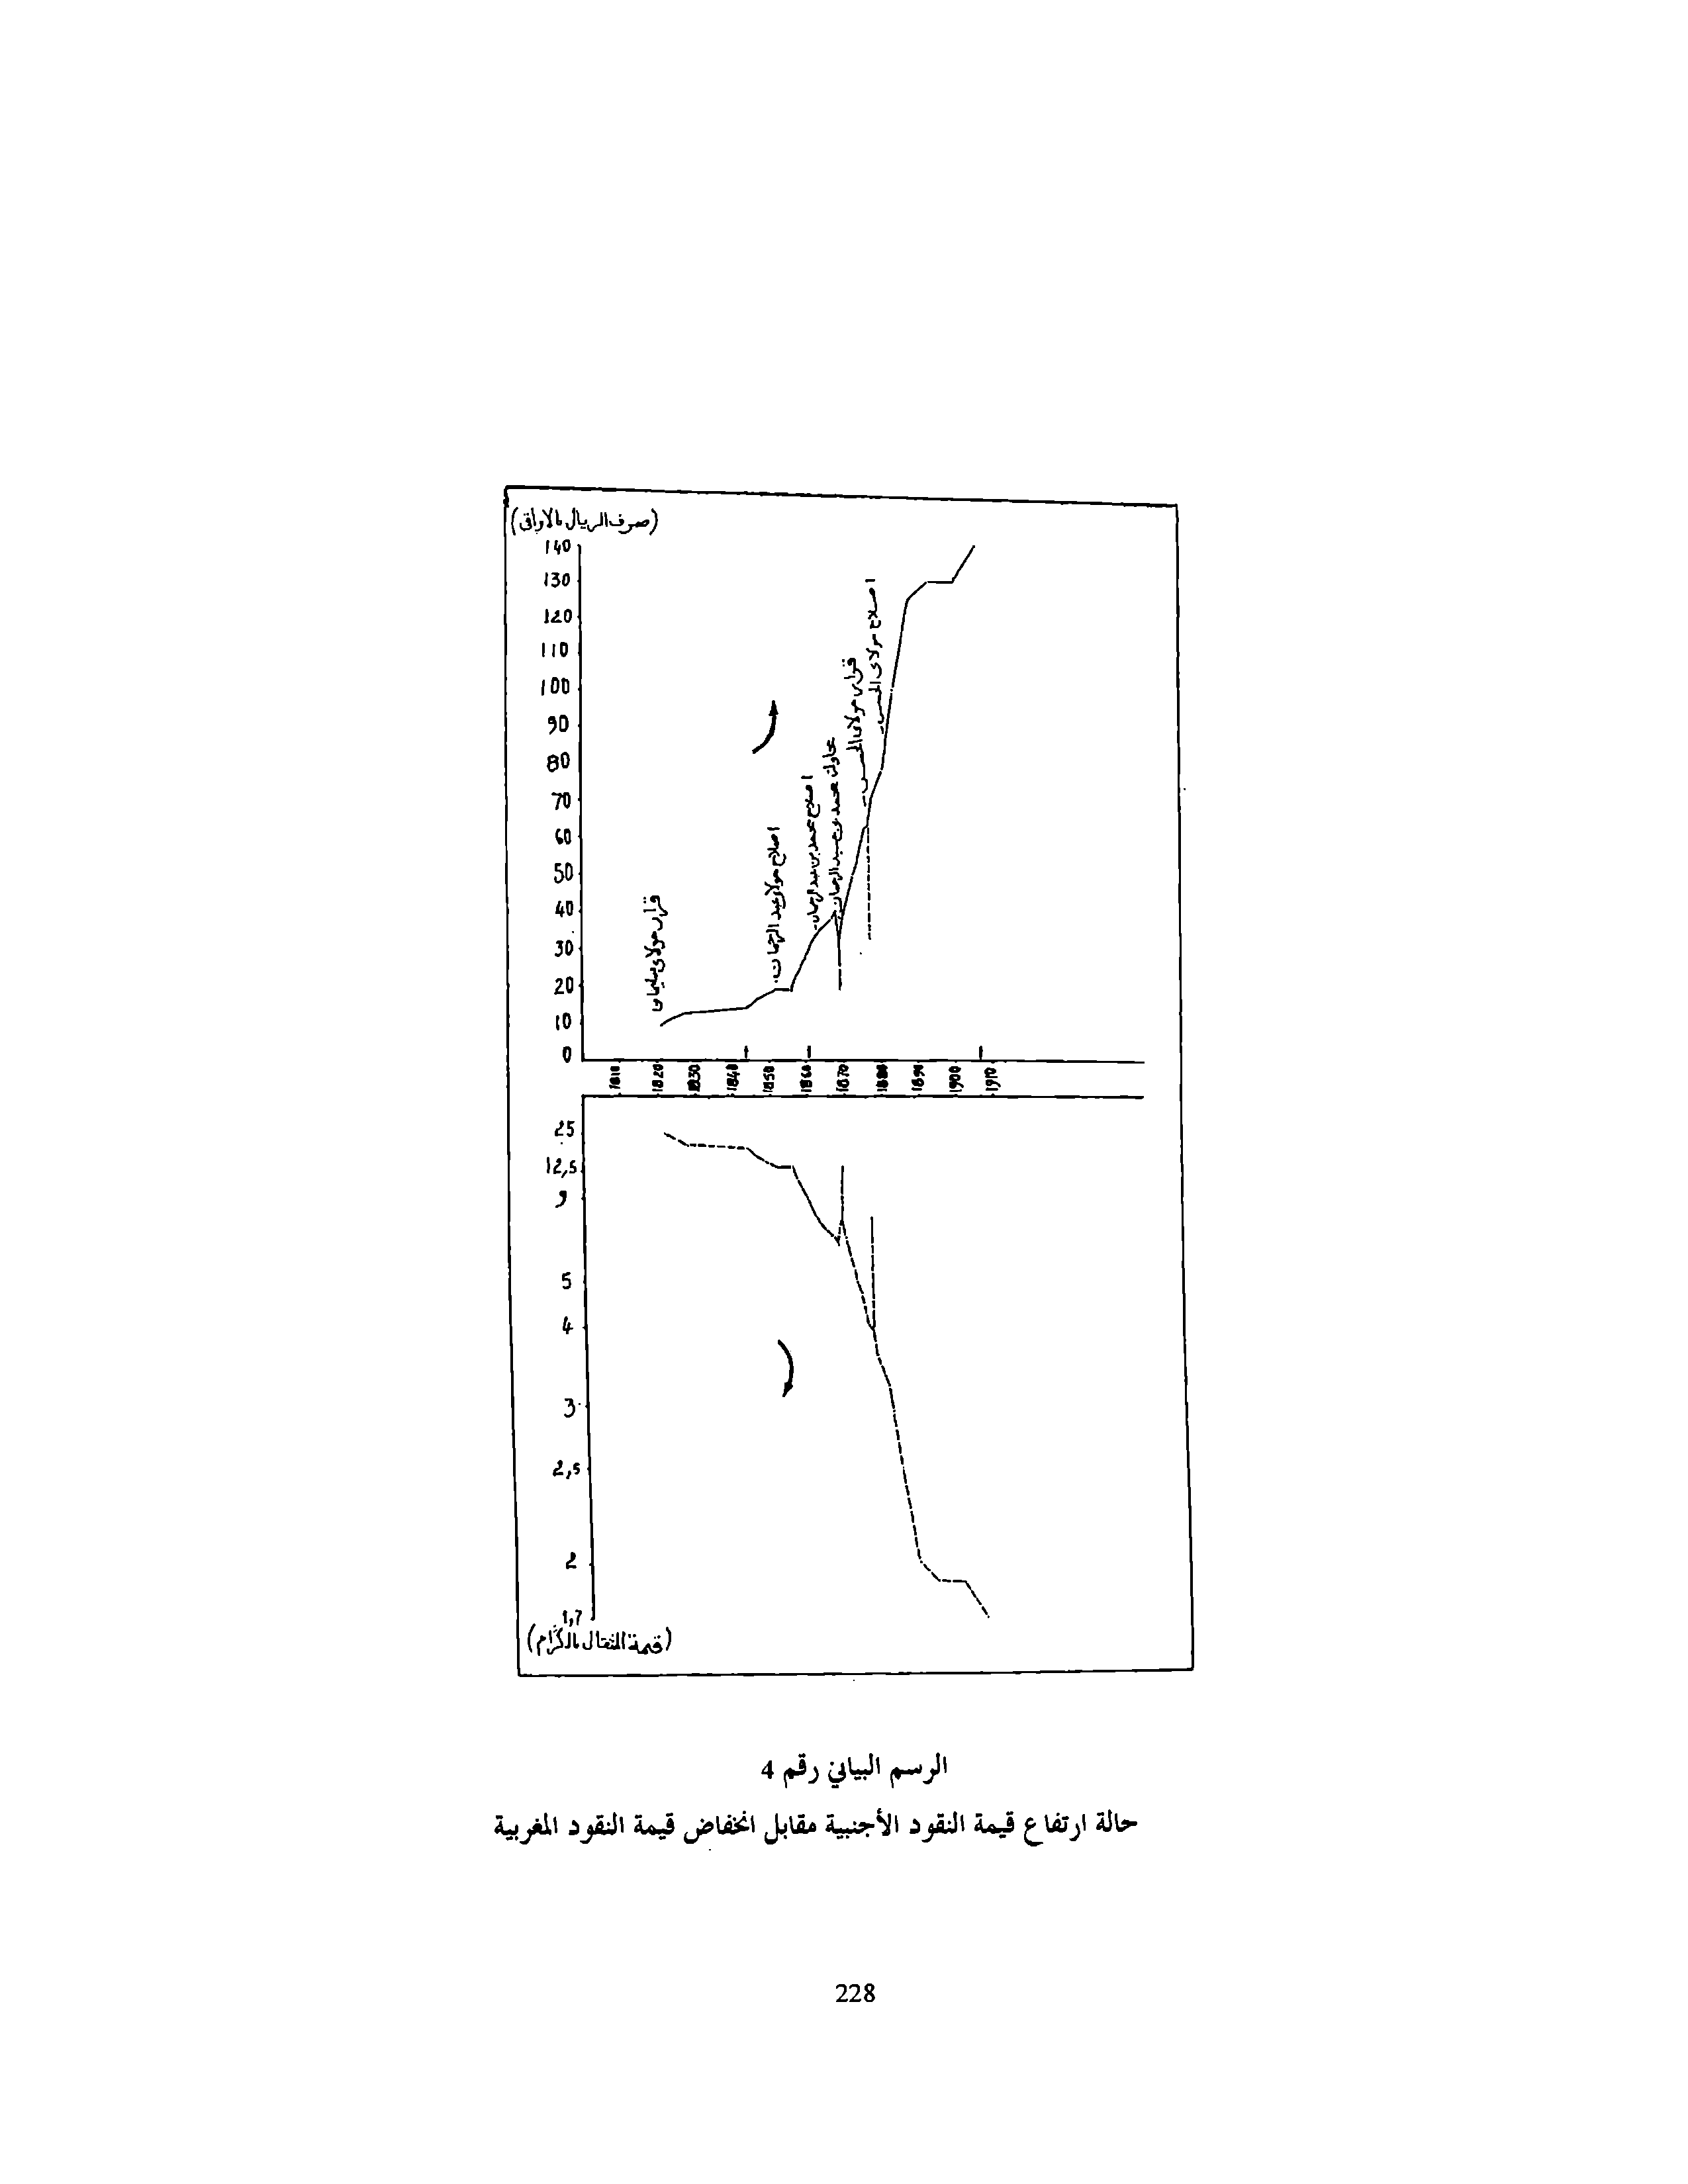 (صرف الريال بالاواقي)
140
130
120
110
100
90
80
70
60
50
40
30
20
10
0
قرار مولاي سليمان
اصلاح مولاي عبد الرحمان
اصلاح محمد بن عبد الرحمان
محاولة محمد بن عبد الرحمان
قرار مولاي الحسن
اصلاح مولاي الحسن
1810
1820
1830
1840
1850
1860
1870
1880
1890
1900
1910
25
12,5
9
5
4
3
2,5
2
1,7
(قيمة المثقال بالگرام)
الرسم البياني رقم 4
حالة ارتفاع قيمة النقود الأجنبية مقابل انخفاض قيمة النقود المغربية
228